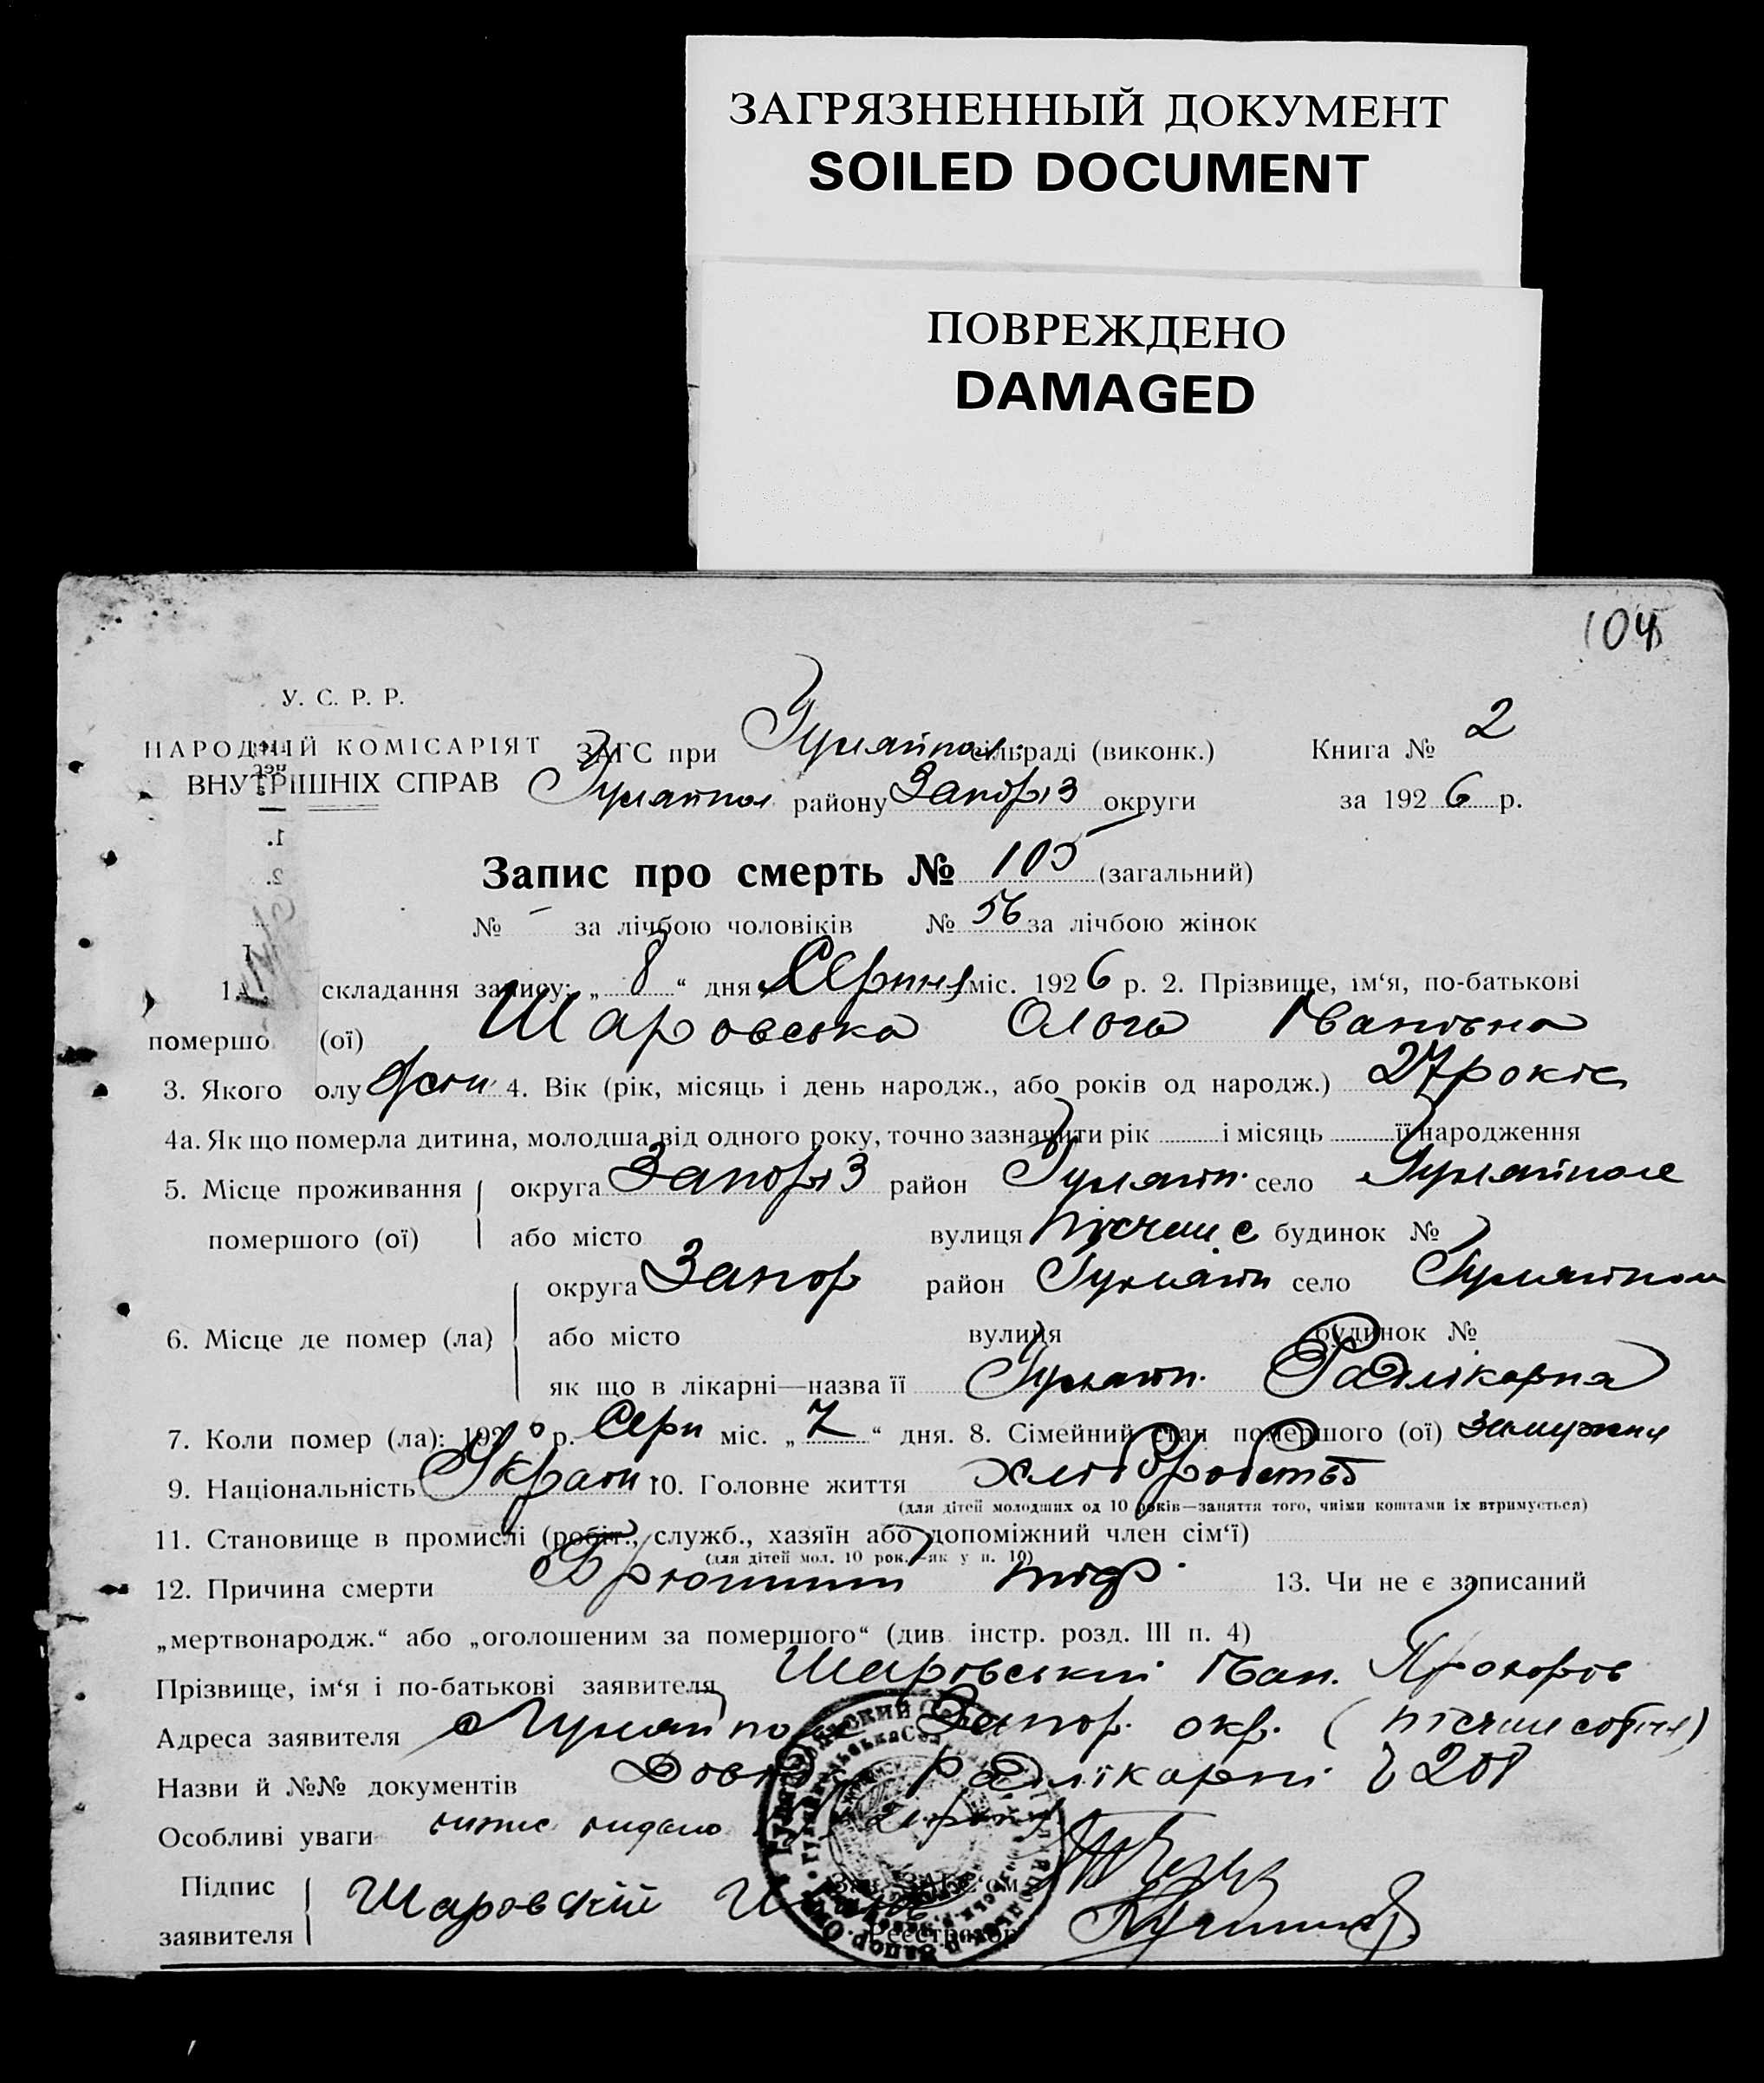 ЗАГРЯЗНЕННЫЙ ДОКУМЕНТ
SOILED DOCUMENT
ПОВРЕЖДЕНО
DAMAGED
104
У. С. Р. Р.
НАРОДНІЙ КОМІСАРІЯТ
ВНУТРІШНІХ СПРАВ
ЗАГС при Гуляйпол. сільраді (виконк.) Книга № 2
Гуляйпол району Запоріз округи за 1926 р.
Запис про смерть № 105 (загальний)
№ - за лічбою чоловіків № 56 за лічбою жінок
1. складання запису: „8“ дня Серпня міс. 1926 р. 2. Прізвище, ім‘я, по-батькові
першо (ої) Шаровська Ольга Іванівна
3. Якого олу 4. Вік (рік, місяць і день народж., або років од народж.) 27 років
4а. Як що померла дитина, молодша від одного року, точно зазначити рік і місяць її народження
5. Місце проживання помершого (ої) округа Запоріз район Гуляйп. село Гуляйполе
або місто вулиця будинок №
6. Місце де помер (ла) округа Запор район Гуляйп село Гуляйпол
або місто вулиця будинок №
як що в лікарні—назва її Гуляйп. Райлікарна
7. Коли помер (ла): 192 р. Серп міс. „7“ дня. 8. Сімейний стан помершого (ої) замужня
9. Національність Україн. 10. Головне життя хліборобство
(для дітей молодших од 10 років—заняття того, чиїми коштами їх втримується)
11. Становище в промислі (робіт., служб., хазяїн або допоміжний член сім‘ї)
(для дітей мол. 10 рок.—як у п. 10)
12. Причина смерти Брюшний тіф. 13. Чи не є записаний
„мертвонародж.“ або „оголошеним за помершого“ (див. інстр. розд. III п. 4)
Прізвище, ім‘я і по-батькові заявителя Шаровський Іван. Прохоров
Адреса заявителя с Гуляйпол Запор. окр.
Назви й №№ документів Райлікарні
Особливі уваги видано
Зав. ЗАГС‘ом
Підпис заявителя Шаровскій Иван
Реєстратор